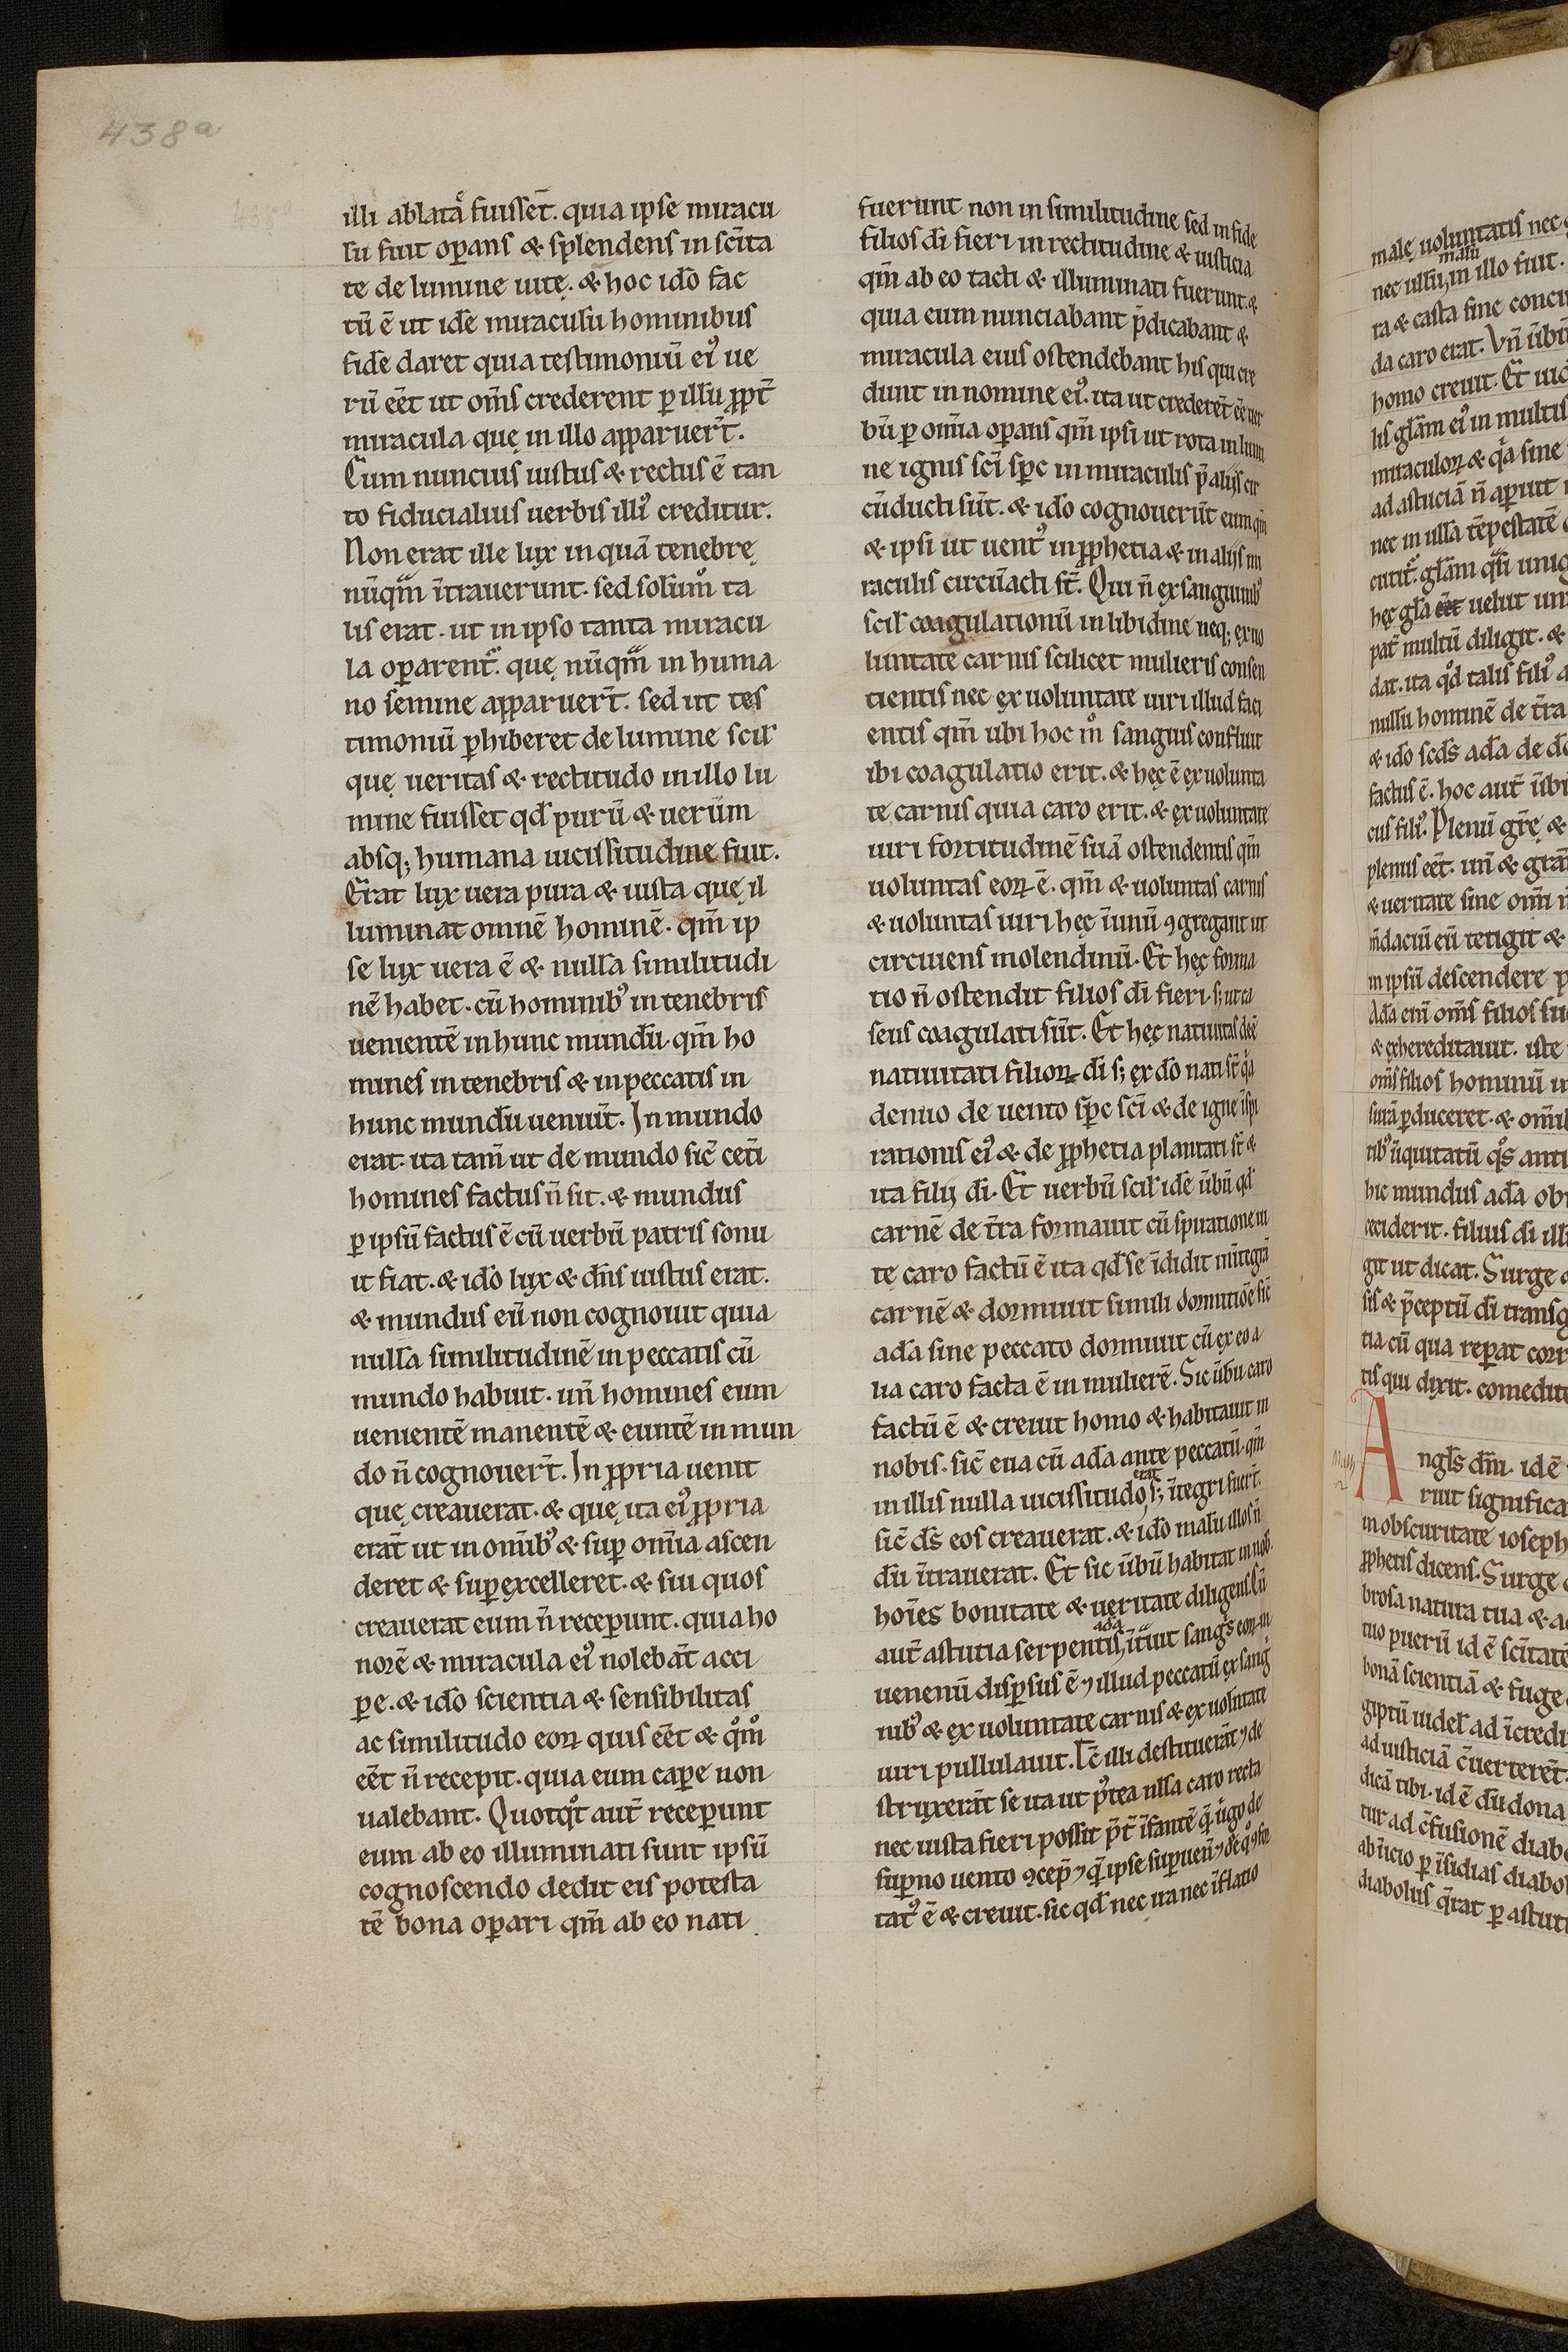 438a
illi ablata᷒ fuisset̄. quia ipse miracu
lū fuit op̄ans & splendens in sc̄ita
te de lumine uitę. & hoc id̄o fac
tū ē ut id̄e miraculū hominibus
fidē daret quia testimoniū eiꝰ ue
rū eēt ut om̄s crederent ꝑ illū ꝓpt̄
miracula quę in illo apparuer̄t.
Cum nuncius iustus & rectus ē tan
to fiducialius uerbis illiꝰ creditur.
Non erat ille lux in quā tenebrę
nūqͣm īt̄rauerunt. sed solūm̊ ta
lis erat. ut in ipso tanta miracu
la oꝑarent᷒. quę nūqͣm in huma
no semine apparuer̄t. sed ut tes
timoniū ꝑhiberet de lumine scil̄
quę ueritas & rectitudo in illo lu
mine fuisset qd̄ purū & uerūm
absq; humana uicissitudine fuit.
Erat lux uera pura & iusta quę il
luminat omnē hominē. qm̄ ip
se lux uera ē & nulla similitudi
nē habet. cū hominibꝰ in tenebris
uenientē in hunc mundū. qm̄ ho
mines in tenebris & in peccatis in
hunc mundū ueniūt. In mundo
erat. ita tam̄ ut de mundo sic̄ cet̄i
homines factus n̄ sit. & mundus
ꝑ ipsū factus ē cū uerbū patris sonu
it fiat. & id̄o lux & dn̄s iustus erat.
& mundus eū non cognouit quia
nullā similitudinē in peccatis cū
mundo habuit. un̄ homines eum
uenientē manentē & euntē in mun
do n̄ cognouer̄t. In ꝓpria uenit
quę creauerat. & quę ita eiꝰ ꝓpria
erāt ut in omībꝰ & suꝑ om̄ia ascen
deret & suꝑexcelleret. & sui quos
creauerat eum n̄ receꝑunt. quia ho
norē & miracula eiꝰ nolebāt acci
ꝑe. & id̄o scientia & sensibilitas
ac similitudo eoꝝ quis eēt & qͦmͦ
eēt n̄ recepit. quia eum caꝑe non
ualebant. Quotqͦt aut̄ receꝑunt
eum ab eo illuminati sunt ipsū
cognoscendo dedit eis potesta
tē bona oꝑari qm̄ ab eo nati
fuerunt non in similitudine sed in fide
filios di̅ fieri in rectitudine & iusticia
qm̄ ab eo tacti & illuminati fuerunt. &
quia eum nunciabant p̄dicabant &
miracula eius ostendebant his qui cre
dunt in nomine eiꝰ. ita ut crederēt eē uer
bū ꝑ om̄ia oꝑans qm̄ ipsi ut rota in lumi
ne ignis sc̄i sp̄c in miraculis p̄ aliis cir
cūducti sūt. & id̄o cognouerūt eum qm̄
& ipsi ut uentꝰ in ꝓphetia & in aliis mi
raculis circūacti st̄. Qui n̄ ex sanguinibꝰ
scil̄ coagulationū in libidine neq; ex uo
luntate carnis scilicet mulieris consen
tientis nec ex uoluntate uiri illud faci
entis qm̄ ubi hoc mͦ sanguis confluit
ibi coagulatio erit. & hęc ē ex uolunta
te carnis quia caro erit. & ex uoluntate
uiri fortitudinē suā ostendentis qm̄
uoluntas eoꝝ ē. qm̄ & uoluntas carnis
& uoluntas uiri hęc īunū ꝯgregant ut
circuiens molendinū. Et hęc forma
tio n̄ ostendit filios di̅ fieri. s; ut ca
seus coagulati sūt. Et hęc natiuitas deē
natiuitati filioꝝ di̅ s; ex do̅ nati st̄ qͣ
denuo de uento sp̄c sc̄i & de igne īspi
rationis eiꝰ & de ꝓphetia plantati st̄ &
ita filii di̅. Et uerbū scil̄ idē ūbū qd̄
carnē de t̄ra formauit cū spiratione ui
te caro factū ē ita qd̄ se īdidit in ītegrā
carnē & dormiuit simili dormitiōe sic̄
ada sine peccato dormiuit cū ex eo a
lia caro facta ē in mulierē. Sic ūbū caro
factū ē & creuit homo & habitauit in
nobis. sic̄ eua cū ada ante peccatū. qm̄
in illis nulla uicissitudo erat s; ītegri fuer̄t.
sic̄ ds̄ eos creauerat. & id̄o malū illos n̄
dū īt̄rauerat. Et sic ūbū habitat in nob̄.
hoīes bonitate & ueritate diligens. Cū
aut̄ astutia serpentis adā īt̄uit sangs̄ eoꝝ in
uenenū disꝑsus ē ⁊ illud peccatū ex sangͥ
nibꝰ & ex uoluntate carnis & ex uolūtate
uiri pullulauit. Hc̄ illi destituerāt ⁊ de
struxerāt se ita ut pꝰtea ulla caro recta
nec iusta fieri possit p̄t̄ īfantē qͣ̄ ūgo de
suꝑno uento ꝯcep̄ ⁊ qͣ̄ ipse suꝑuen̄
tatꝰ ē & creuit. sic qd̄ nec ira nec īflatio
malę uoluntatis nec
nec ullū malū in illo fuit.
ta & casta sine concu
da caro erat. Vn̄ ūbū
homo creuit. Et uid
lis gl̄am eiꝰ in multis
miraculoꝝ & qͣ sine
ad astuciā n̄ aꝑuit
nec in ulla tēpestatē
cutit᷒. gl̄am qͣsi unig
hęc gl̄a eēt uelut un
pat̄ multū diligit. &
dat. ita qd̄ talis filiꝰ
nullū hominē de t̄ra
& id̄o scd̄s adā de do̅
factus ē. hoc aut̄ ūbū
cus filiꝰ. Plenū grę̄ &
plenus eēt. un̄ & grā
& ueritate sine om̄i
m̄daciū eū tetigit &
in ipsū descendere
Ada eni̅ om̄s filios su
& exhereditauit. iste
om̄s filios hominū
surā ꝑduceret. & om̄ib
tibꝰ iniquitatū qͦs anti
hic mundus adā ob
ceciderit. filius di̅ ill
git ut dicat. Surge
sis & p̄ceptū di̅ transg
tia cū qua reꝑat corr
tis qui dixit. comedite
Angl̄s dn̄i. id ē
ruit significa
in obscuritate ioseph
ꝓphetis dicens. Surge
brosa natura tua & ac
tuo puerū id ē sc̄itatē
bonā scientiā & fuge
giptū uidel̄ ad īcredu
ad iusticiā c̄uerteret.
dicā tibi. id ē dū dona
tur ad c̄fusionē diabo
ab īicio ꝑ īsidias diabol
diabolus qͣ̄rat ꝑ astuti